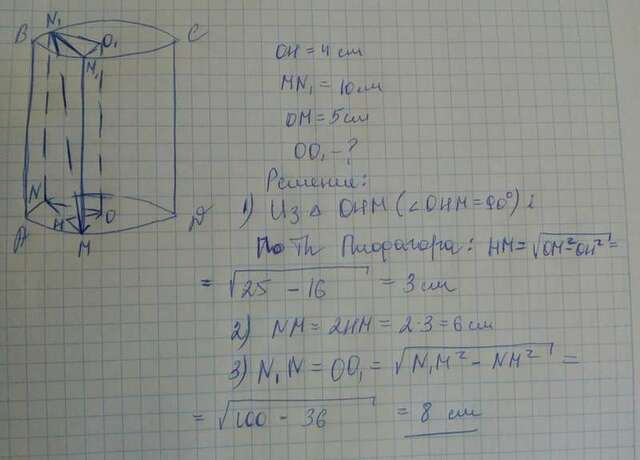 B N₁ O₁ C
N₁
N O
A H M D
OH = 4 см
MN₁ = 10 см
OM = 5 см
OO₁ - ?
Решение:
1) Из △ OHM (∠OHM = 90°):
По Th Пифагора: HM = √OM² - OH² =
= √25 - 16 = 3 см
2) NM = 2HM = 2·3 = 6 см
3) N₁N = OO₁ = √N₁M² - NM² =
= √100 - 36 = 8 см